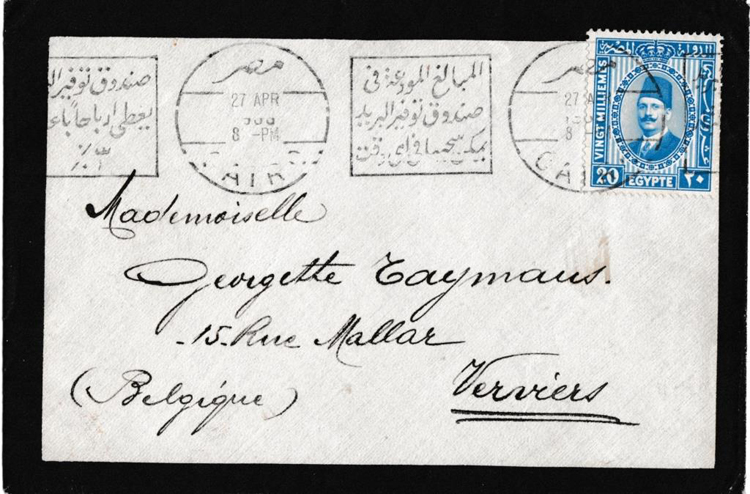 صندوق توفير ال
يعطى ارباحاً باء
٪
مصر
27 APR
8 -PM
CAIRO
المبالغ المودعة فى
صندوق توفير البريد
يمكن سحبها فى اى وقت
مصر
27
8
CA
VINGT MILLIEMES
20
EGYPTE
٢٠
Mademoiselle
Georgette Taymans.
-15-Rue Mallar
Verviers
(Belgique)